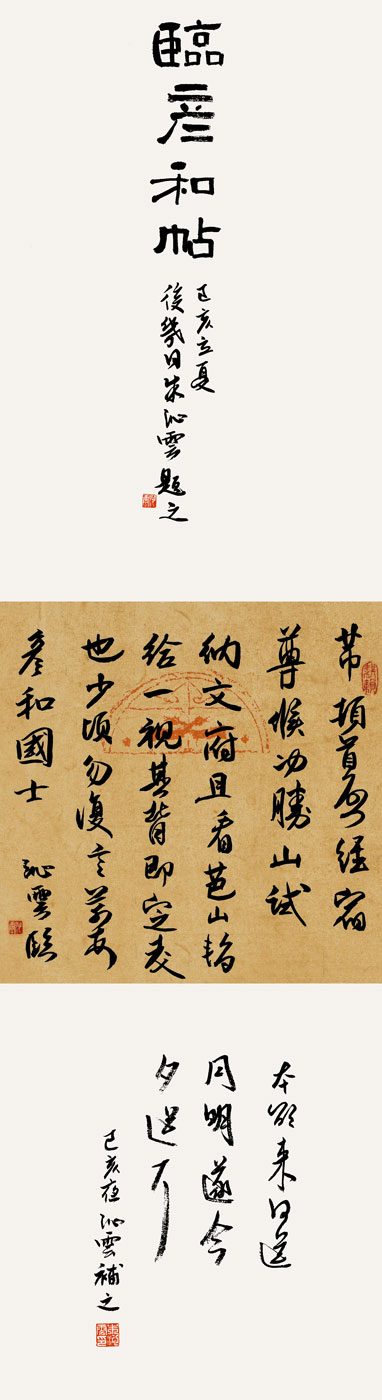 臨彥和帖
己亥立夏
後幾日朱沁雲題之
芾頓首啓經宿
尊候沖勝山試
納文府且看芭山暫
給一視其背即定交
也少頃勿復言芾頓首
彥和國士
沁雲臨
本欲來日送
月明遂今
夕送耳
己亥夜沁雲補之